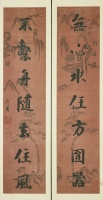 無心水任方圓器
不繫舟隨去住風